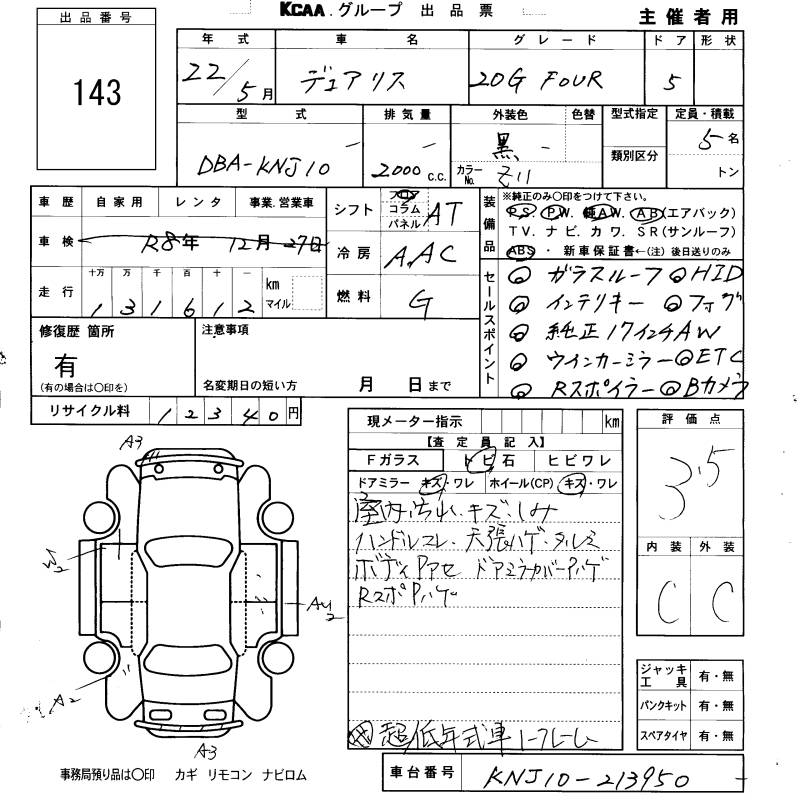 KCAA.グループ 出品票
主催者用
出品番号
143
年式 車名 グレード ドア 形状
22/5月 デュアリス 20G FOUR 5
型式 排気量 外装色 色替 型式指定 定員・積載
類別区分
DBA-KNJ10 2000 c.c. 黒 カラーNo. Z11 5名
トン
車歴 自家用 レンタ 事業.営業車
車検 R8年 12月 27日
走行 十万 万 千 百 十 一 km マイル
1 3 1 6 1 2
シフト フロア コラム パネル AT
冷房 AAC
燃料 G
装備品 ※純正のみ〇印をつけて下さい。
P.S P.W. 純A.W. A.B(エアバック)
T.V. ナビ. カワ. S.R(サンルーフ)
ABS ・ 新車保証書←(注) 後日送りのみ
セールスポイント
◎ ガラスルーフ ◎ HID
◎ インテリキー ◎ フォグ
◎ 純正17インチAW
◎ ウインカーミラー ◎ ETC
◎ Rスポイラー ◎ Bカメラ
修復歴 箇所
有
(有の場合は〇印を)
注意事項
名変期日の短い方 月 日まで
リサイクル料 1 2 3 4 0 円
現メーター指示 km
【査定員記入】
Fガラス トビ石 ヒビワレ
ドアミラー キズ・ワレ ホイール(CP) キズ・ワレ
室内汚れ.キズ.しみ
ハンドルスレ.天張ハゲ.タルミ
ボディPアセ ドアミラカバーPハゲ
RスポPハゲ
超低年式車 ノークレーム
評価点
3.5
内装 外装
C C
ジャッキ工具 有・無
パンクキット 有・無
スペアタイヤ 有・無
A3
A2
A3
事務局預り品は〇印 カギ リモコン ナビロム
車台番号 KNJ10-213950